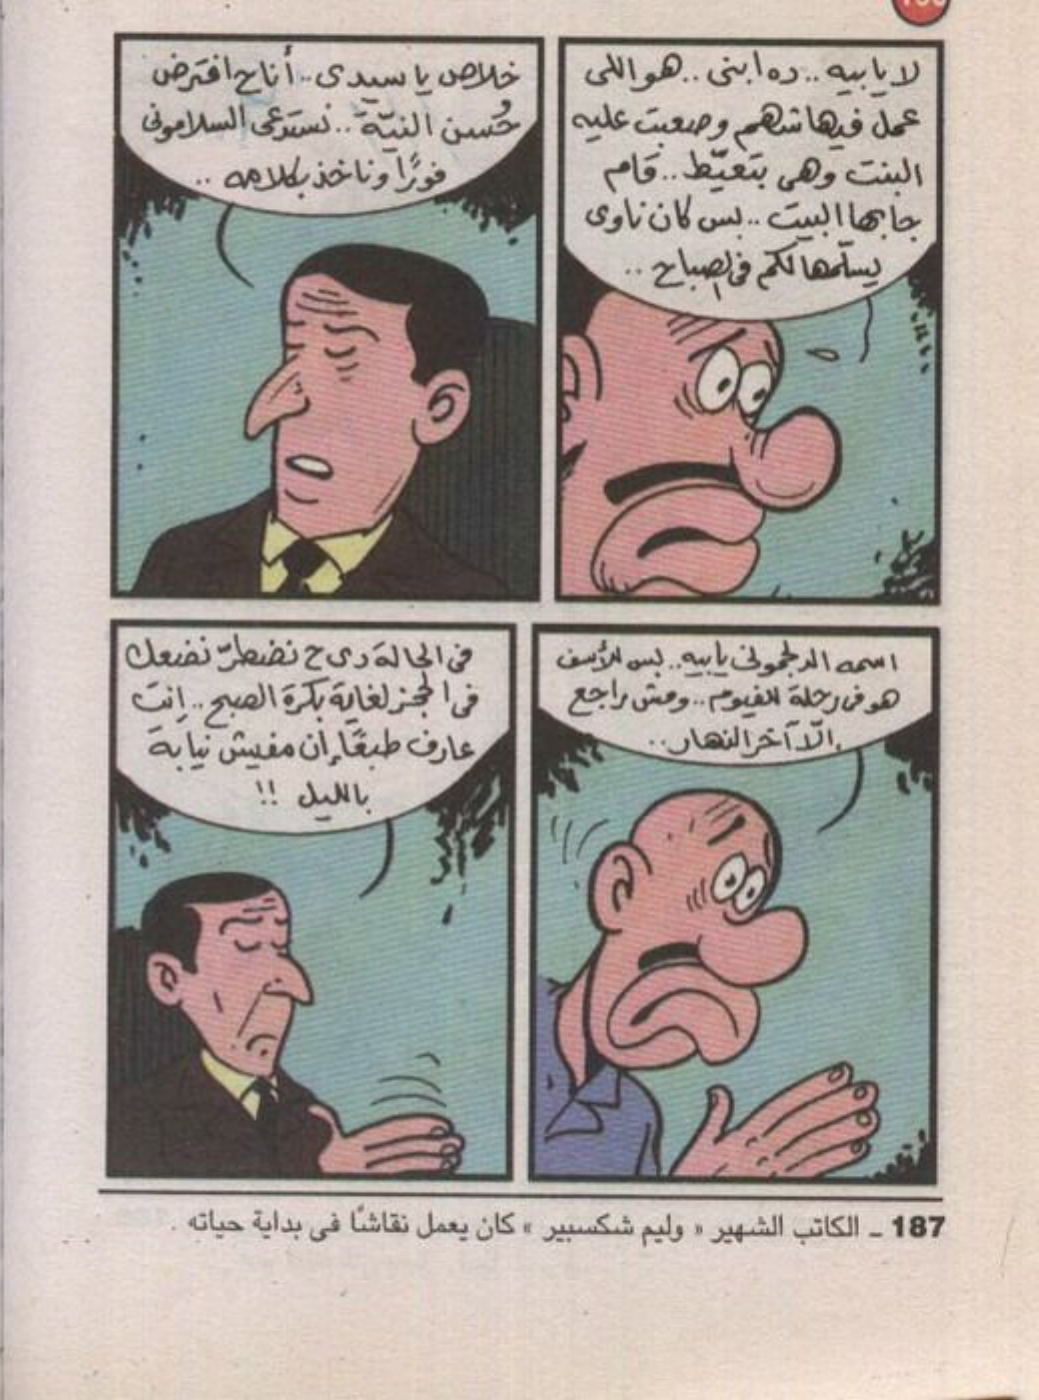 لا يا بيه .. ده ابنى .. هو اللى
عمل فيها شهم وصعبت عليه
البنت وهى بتعيّط .. قام
جابها البيت .. بس كان ناوى
يسلّمها لكم فى الصباح ..
خلاص يا سيدى .. أنا ح افترض
حُسن النيّة .. نستدعى السلامونى
فورًا وناخذ بكلامه ..
اسمه الدلجمونى يا بيه .. بس للأسف
هو فى رحلة الفيوم .. ومش راجع
إلّا آخر النهار ..
فى الحالة دى ح نضطرّ نضعك
فى الحجز لغاية بكرة الصبح .. إنتَ
عارف طبعًا إن مفيش نيابة
بالليل !!
187 ــ الكاتب الشهير « وليم شكسبير » كان يعمل نقاشًا فى بداية حياته .